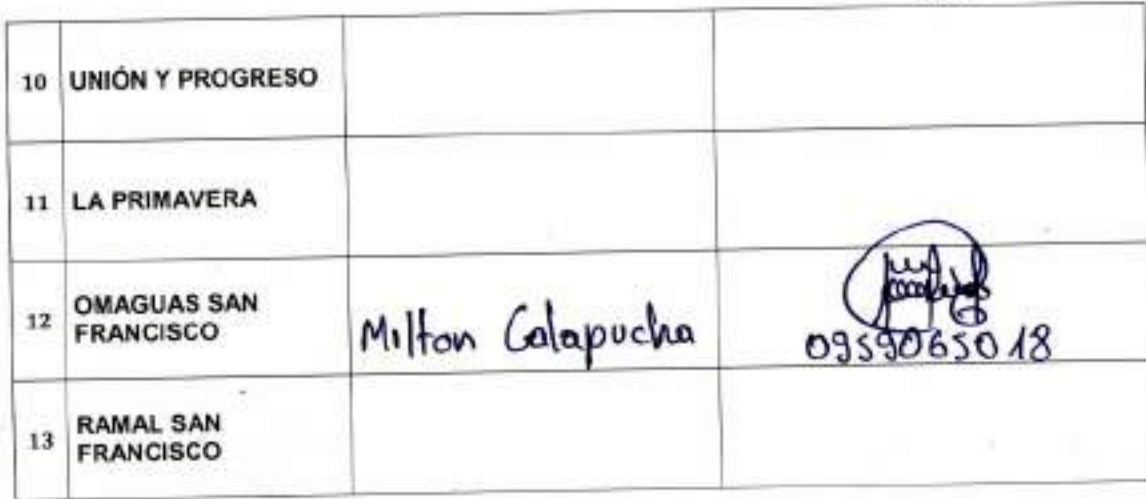 10 UNIÓN Y PROGRESO
11 LA PRIMAVERA
12 OMAGUAS SAN
FRANCISCO Milton Calapucha
0959065018
13 RAMAL SAN
FRANCISCO